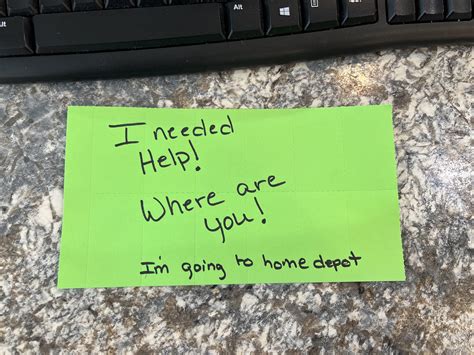 Alt
Alt
I needed
Help!
Where are
you!
I'm going to home depot